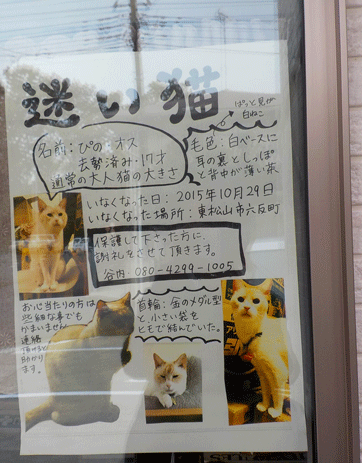 迷い猫
ぱっと見が
白ねこ
名前:ぴの・オス
去勢済み・17才
通常の大人猫の大きさ
毛色:白ベースに
耳の裏としっぽ
と背中が薄い茶
いなくなった日:2015年10月29日
いなくなった場所:東松山市六反町
保護して下さった方に、
謝礼をさせて頂きます。
谷内:080-4299-1005
お心当たりの方は
些細な事でも
かまいません
連絡
頂けると
助かり
ます。
首輪:金のメダル型
と小さい袋を
ヒモで結んでいた。